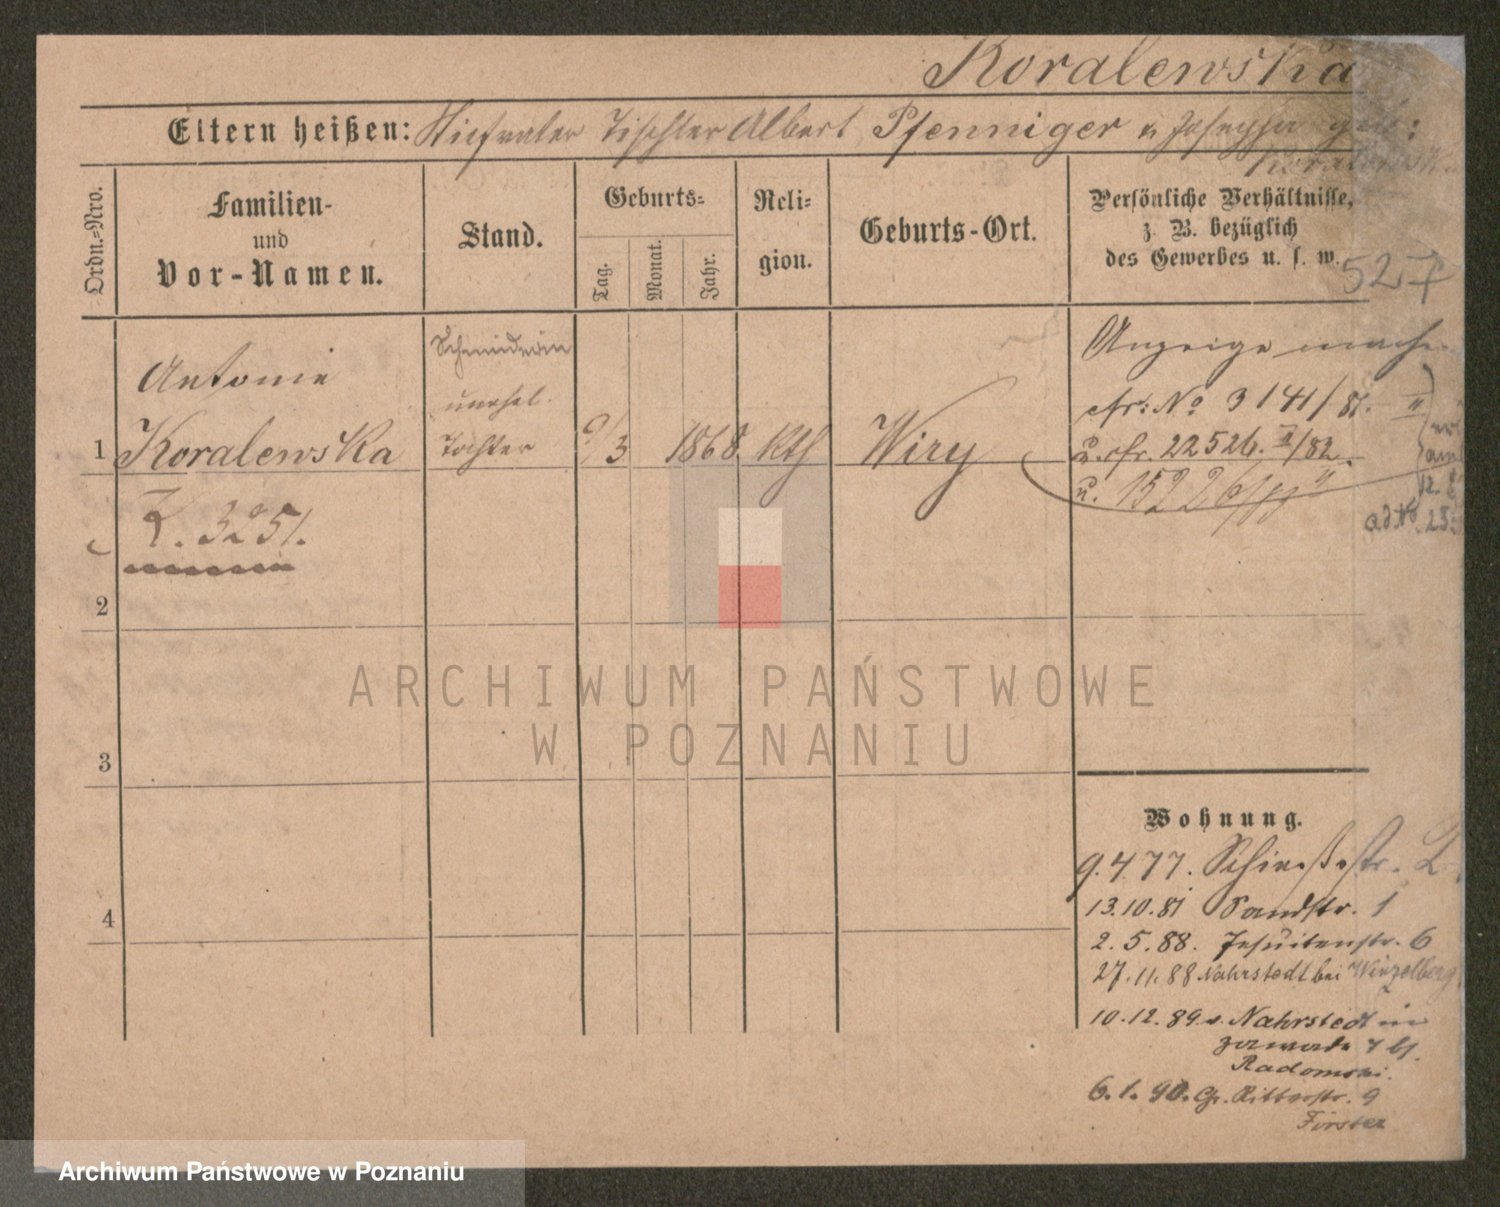 Koralewska
Eltern heißen: Stiefvater Tischler Albert Pfenniger u. Josepha geb:
Koralewska
Ordn.=Nro.
Familien-
und
Vor-Namen.
Stand.
Geburts=
Tag.
Monat.
Jahr.
Reli=
gion.
Geburts-Ort.
Persönliche Verhältnisse,
z. B. bezüglich
des Gewerbes u. s. w.
527
Anzeige machen
cfr: No 3141/81. II
u. cfr. 22526. II/82.
u. 15226
ad No. 25
Schneiderin
unehel.
Tochter
Antonie
1 Koralewska
9/3 1868 kth Wiry
Z. 3251.
2
3
4
Wohnung.
9.4.77. Schießstr. 2.
13.10.81 Sandstr. 1
2.5.88. Jesuitenstr. 6
27.11.88 Nahrstedt bei Winzelberg
10.12.89. v. Nahrstedt in
Zawade 7 b/.
Radomski.
6.1.90. Gr. Ritterstr. 9
Förster
ARCHIWUM PAŃSTWOWE
W POZNANIU
Archiwum Państwowe w Poznaniu